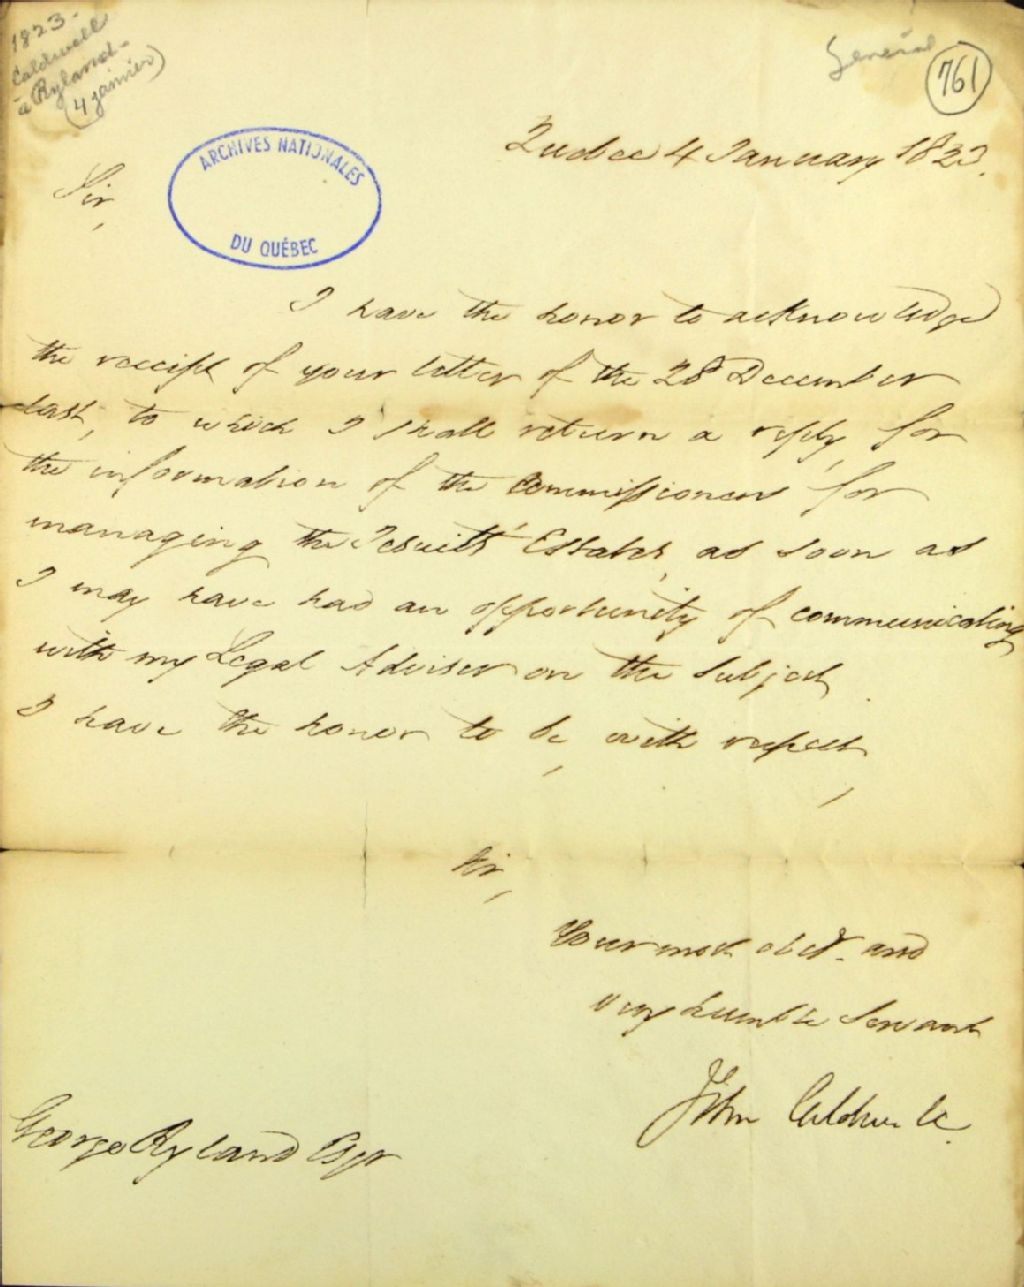 1823-
Caldwell
à Ryland-
(4 janvier)
General
761
Quebec 4 January 1823.
ARCHIVES NATIONALES
DU QUÉBEC
Sir,
I have the honor to acknowledge
the receipt of your letter of the 28 December
last, to which I shall return a reply, for
the information of the Commissioners for
managing the Jesuits' Estates, as soon as
I may have had an opportunity of communicating
with my Legal Adviser on the subject.
I have the honor to be, with respect,
Sir,
Your most obedt. and
very humble Servant
John Caldwell.
George Ryland Esqr